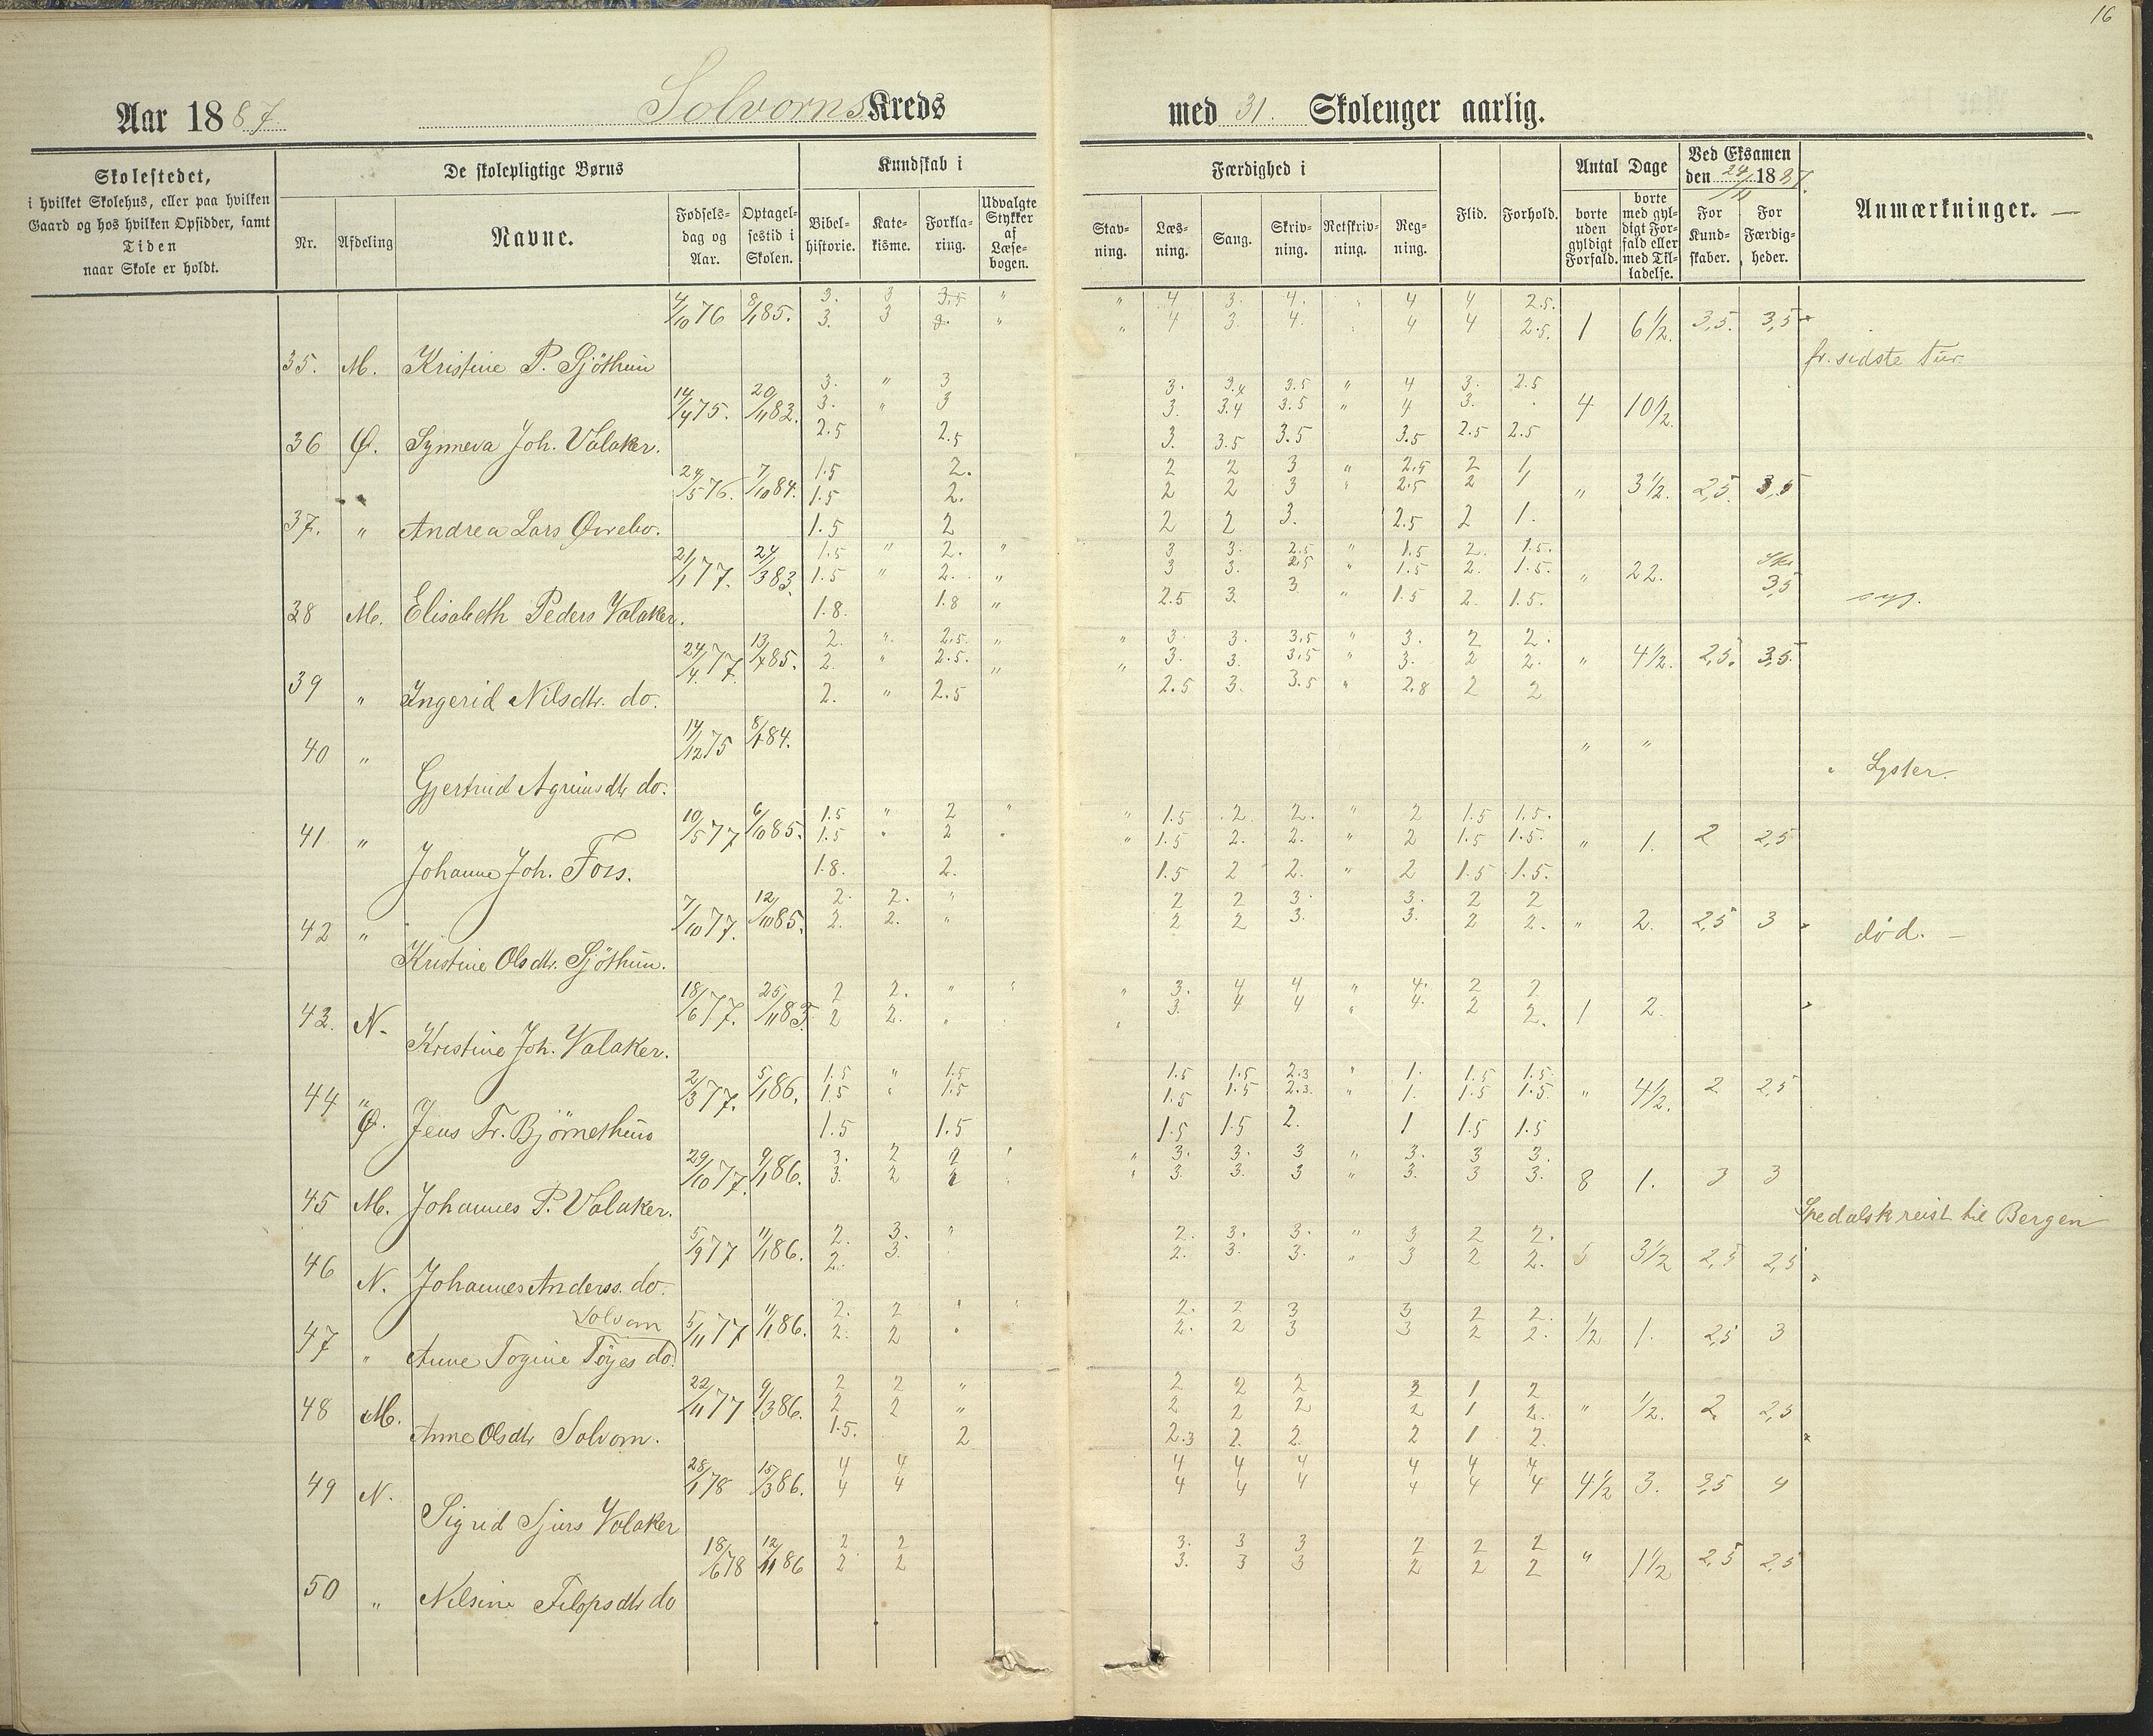 16
Aar 1887. Solvorns Kreds med 31. Skoleuger aarlig.
Skolestedet,
i hvilket Skolehus, eller paa hvilken
Gaard og hos hvilken Opsidder, samt
Tiden
naar Skole er holdt.
De skolepligtige Børns
Nr. Afdeling Navne. Fødselsdag og Aar. Optagelsestid i Skolen.
Kundskab i
Bibelhistorie. Katekisme. Forklaring. Udvalgte Stykker af Læsebogen.
Færdighed i
Stavning. Læsning. Sang. Skrivning. Retskrivning. Regning.
Flid. Forhold.
Antal Dage
borte uden gyldigt Forfald. borte med gyldigt Forfald eller med Tilladelse.
Ved Eksamen
den 24/11 1887.
For Kundskaber. For Færdigheder.
Anmærkninger.
4/10 76 8/1 85. 3. 3 3.5 " " 4 3. 4. " 4 4 2.5.
3. 3 3. " " 4 3. 4. 4 4 2.5. 1 6 1/2. 3,5. 3,5
35. M. Kristine P. Sjöthun fr. sidste tur
14/4 75. 20/11 82. 3. " 3 3. 3.4 3.5 " 4 3. 2.5
3. " 3 3. 3.4 3.5 " 4 3. 4 10 1/2.
36 Ø. Synneva Joh. Valaker. 2.5 2.5 3. 3.5 3.5 3.5 2.5 2.5
24/5 76. 7/10 84. 1.5 2. 2 2 3 " 2.5 2 1
1.5 2. 2 2 3 " 2.5 2 1 " 3 1/2. 2,5. 3,5
37. " Andrea Lars Øvrebo. 1.5 2 2 2 3. 2.5 2 1.
21/1 77. 24/3 83. 1.5 " 2. " 3 3. 2.5 " 1.5 2. 1.5.
1.5 " 2. " 3 3. 2.5 " 1.5 2. 1.5. " 22. 3,5
38 M. Elisabeth Peders Valaker. 1.8. 1.8 " 2.5 3. 3 " 1.5 2. 1.5. syg.
24/4 77. 13/1 85. 2. " 2.5. " " 3. 3. 3.5 " 3. 2 2.
2. " 2.5. " " 3. 3. 3.5 " 3. 2 2. " 4 1/2. 2,5. 3,5.
39 " Ingerid Nilsdtr. do. 2. " 2.5 2.5 3. 3.5 " 2.8 2 2
14/12 75 8/1 84. " "
40 " Gjertrud Agrimsdtr do. Lyster.
10/5 77 6/10 85. 1.5 " 2 " " 1.5 2. 2. " 2 1.5 1.5.
1.5 " 2 " " 1.5 2. 2. " 2 1.5 1.5. " 1. 2 2,5
41 " Johanne Joh. Fors. 1.8. 2. 1.5 2 2. " 2 1.5 1.5.
7/10 77. 12/10 85. 2. 2. " 2 2 3. 3. 2 2
2. 2. " 2 2 3. 3. 2 2. " 2. 2,5 3 død.
42 " Kristine Olsdtr. Sjöthun.
18/6 77. 25/11 83. 2 2. " " " 3. 4 4 " 4. 2 2
2 2. " 3. 4 4 " 4. 2 2. 1 2.
43. N. Kristine Joh. Valaker.
2/3 77. 5/1 86. 1.5 " 1.5 1.5 1.5 2.3 " 1. 1.5 1.5.
1.5 " 1.5 1.5 1.5 2.3. " 1. 1.5 1.5. " 4 1/2. 2 2,5
44 " Ø. Jens Fr. Björnethun 1.5 1.5 1.5 1.5 2. 1 1.5 1.5
29/10 77. 9/1 86. 3. 2 2 " " 3. 3. 3 " 3. 3 3.
3. 2 2 " 3. 3. 3 " 3. 3 3. 8 1. 3 3
45 M. Johannes P. Valaker. Spedalsk reist til Bergen
5/9 77 11/1 86. 2. 3. " 2. 3. 3. " 3 2 2.
2. 3. 2. 3. 3. " 3 2 2. 5 3 1/2 2,5 2,5
46 N. Johannes Anderss. do.
Solvorn
5/11 77 11/1 86. 2. 2 " " 2. 2 3 3 2 2.
2. 2 " 2. 2 3 3 2 2. 1/2 1. 2,5 3
47 " Anne Togine Töges do.
22/11 77 9/3 86. 2 2 " 2 2 2 2 1 2
2 2 " 2 2 2 2 1 2. " 1/2. 2 2,5
48 M. Anne Olsdtr Solvorn. 1.5. 2 2.3 2. 2. 2 1 2.
28/1 78 15/3 86. 4 4 4 4 4 4 4 4
4 4 4 4 4 4 4 4 4 1/2 3. 3,5 4
49 N. Sigrid Sjurs Valaker
18/6 78 12/11 86 2 2 3. 3 3 2 2 2
2 2 3. 3 3 2 2 2 " 1 1/2 2,5 2,5
50 " Nilsine Filopsdtr do